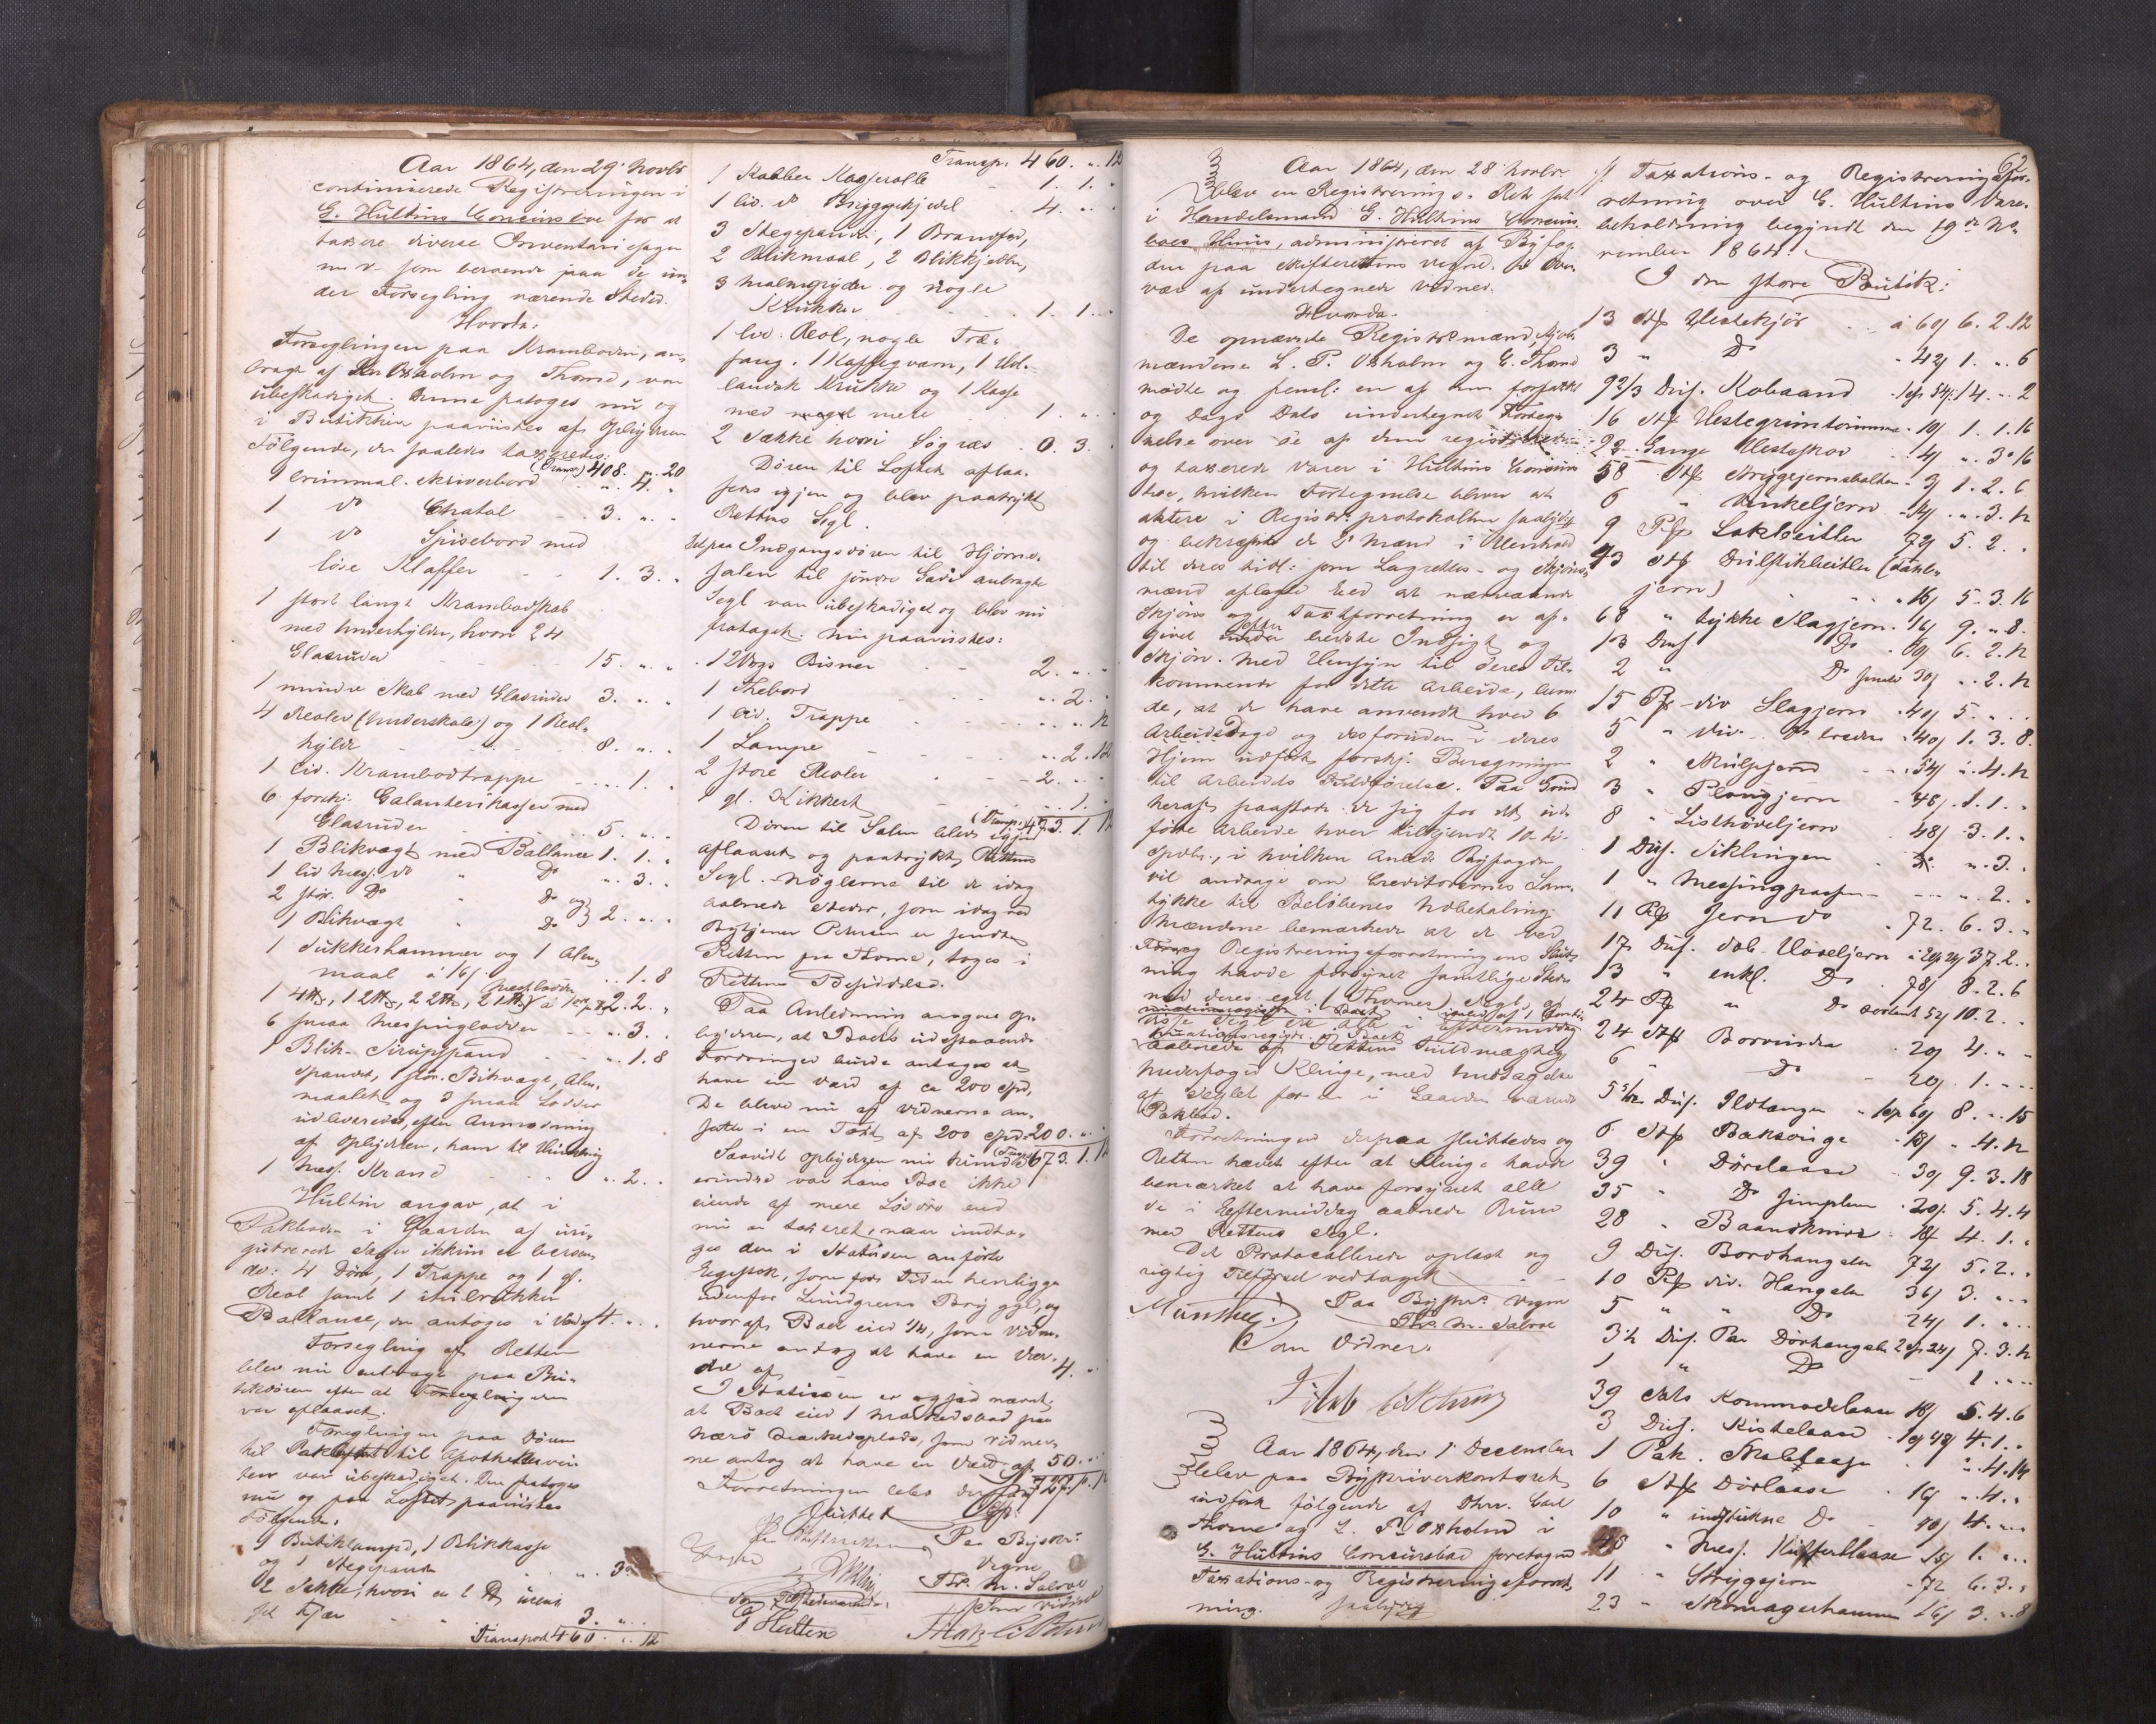 Aar 1864, den 29' Novbr
continuerede Registreringen i
G. Hultins Concursboe for at
taxere diverse Inventariesager
m. v. som beroende paa de un-
der Forsegling værende Steder.
Hvorda:
Forseglingen paa Kramboden, an-
bragt af Oxholm og Thorne, var
ubeskadiget. Denne patoges nu og
i Butikken paavistes af Opbyderen
Følgende, der saaledes taxeredes:
(Transp.) 408. „. 20
1 Skriverbord „. 4. „
1 do Chatol 3. „. „
1 do Spisebord med
løse Klaffer 1. 3. „
1 stort langt Krambodskab
med Underhylder, hvori 24
Glasruder 15. „. „
1 mindre Skab med Glasruder 3. „. „
4 Reoler (Underskabe) og 1 Reol-
hylde 8. „. „
1 lid. Krambodtrappe „. 1. „
6 forskj. Galanterikasser med
Glasruder 5. „. „
1 Blikvægt med Ballance 1. 1. „
1 lid Mess. do „ Do „. 3. „
2 stør. Do „ Do og
1 Blikvægt „ Do 2. „. „
1 Sukkerhammer og 1 Alen-
maal à 16 s. „. 1. 8
6 smaa Messinglodder „. 3. „
1 Blik-Sirupspand „. 1. 8
Spandet, 1 stør. Bikvægt, Alen-
maalet og 3 smaa Lodder
udleveredes, efter Anmodning
af Opbyderen, ham til
1 Mess. Krand „. 2. „
Hultin angav, at i
Pakboden i Gaarden af uri-
gistrerede Sager ikkun er beroen-
de: 4 Døre, 1 Trappe og 1 gl.
Reol samt 1 itubrukken
Ballance, der antoges i Værd 4. „. „
Forsegling af Retten
blev nu anbragt paa Bu-
tikdøren efter at Forseglingen
var aflaaset.
Forseglingen paa Døren
til Pakloftet til Apotheker
var ubeskadiget. Den patoges
nu og paa Loftet paavistes
Følgende:
1 Butiklampe, 1 Blikkasse
og 1 Stegepande „. 3. „
2 Sække, hvori
Fjær 3. „. „
Transport 460. „. 12
Transp. 460. „. 12
1 Kobber Kasserolle 1. 1. „
1 lid. do Bryggekjedel 4. „. „
3 Stegepander, 1 Brandfad,
2 Blikmaal, 2 Blikkjedler,
3 Malmgryder og nogle
Krukker 1. 1. „
1 lid. Reol, nogle Træ-
fang, 1 Kaffeqværn, 1 Ud-
landsk Krukke og 1 Kasse
med noget mele 1. „. „
2 Sække hvori Søgræs 0. 3. „
Døren til Loftet aflaa-
sedes igjen og blev paatrykt
Rettens Segl.
Det paa Indgangsdøren til Hjørne-
salen til søndre Gade anbragte
Segl var ubeskadiget og blev nu
frataget. Nu paavistes:
1 2Vogs Bismer 2. „. „
1 Thebord „. 2. „
1 lid. Trappe „. „. 12
1 Lampe „. 2. 12
2 store Reoler 2. „. „
1 gl. Kikkert „. 1. „
(Transp:) 473. 1. 12
Døren til Salen blev igjen
aflaaset og paatrykt Rettens
Segl. Nøglerne til de idag
aabnede Steder, som idag ved
Bytjener Petersen er sendte
Retten fra Thorne, toges i
Rettens Besiddelse.
Paa Anledning angav Op-
byderen, at Boets udestaaende
Fordringer burde antages at
have en Værd af ca 200 Spd,
De bleve nu af Vidnerne an-
satte i en Taxt af 200 Spd 200. „. „
(Transp) 673. 1. 12
Saavidt Opbyderen nu kunde
erindre var hans Boe ikke
eiende af mere Løsøre end
nu er taxeret, naar undta-
ges den i Statusen anførte
Egestok, som for Tiden henligger
udenfor Lundgreens Brygge, og
hvoraf Boet eier 1/4, som Vidn-
erne antog at have en Vær-
die af 4. „. „
I Statusen er ogsaa nævnt,
at Boet eier 1 Markedsbod paa
Nærø Markedsplads, som Vidner-
ne antog at have en Værd af 50. „. „
727. 1. 12
Forretningen blev derpaa
sluttet
Paa Byskr:
Vegne
Thr. M. Salroe
Som Vidner
Som Tilstedeværende:
G Hultin
Aar 1864, den 28' Novbr
blev en Registrerings-Ret sat
i Handelsmand G. Hultins Concurs-
boes Huus, administreret af Byfog-
den paa Skifterettens Vegne. I Over-
vær af undertegnede Vidner.
Hvorda:
De opnævnte Registr.mænd, Kjøb-
mændene L. P. Oxholm og C. Thorne
mødte og freml: en af dem forfattet
og Dags Dato undertegnet Forteg-
nelse over de af dem registrerede
og taxerede Varer i Hultins Concurs-
boe, hvilken Fortegnelse bliver at
aktere i Registr.protokollen saalydende
og bekræftede de 2 Mænd i Henhold
til deres tidl: som Lagrettes- og Skjøns-
mænd aflagte Eed at nærværende
Skjøns og Taxtforretning er af-
givet efter bedste Indsigt og
Skjøn. Med Hensyn til deres Til-
kommende for dette Arbeide, bem-
de, at de have anvendt hver 6
Arbeidsdage og desforuden i deres
Hjem udført forskj. Beregninger
til Arbeidets Fuldførelse. Paa Grund
heraf paastode de sig for det ud-
førte Arbeide hver tilkjendt 10 ti
Spdlr., i hvilken Anledn. Byfogden
vil andrage om Creditorernes Sam-
tykke til Beløbenes Udbetaling.
Mændene bemærkede at de ved
Registreringsforretningens Slut-
ning havde forsynet samtlige Steder
med deres eget (Thornes) Segl,
aabnede af Rettens Fuldmægtig
Underfoged Klinge, med Undtagelse
af Seglet for den i Gaarden værende
Pakbod.
Forretningen derpaa sluttedes og
Retten hævet efter at Klinge havde
bemærket at have forsynet alle
de i Eftermiddag aabnede Rum
med Rettens Segl.
Det Protocollerede oplæst og
rigtig Tilførsel vedtaget
Munthe. Paa Byskr: Vegne
Thr. M. Salroe
Som Vidner.
Aar 1864, den 1' December
blev paa Byskriverkontoret
indført følgende af Dhrr. Carl
Thorne og L. P. Oxholm i
G. Hultins Concursbod foretagne
Taxations- og Registreringsforret-
ning. saalyd
62
Taxations- og Registreringsfor-
retning over G. Hultins Vare-
beholdning begyndt den 19de No-
vember 1864.
I den store Butik:
13 Stk Hestekjør à 60 s 6. 2. 12
3 „ Do „ 42 s 1. „. 6
9 2/3 Dus. Kobaand 1 sp 54 s 14. „. 2
16 Stk Hestegrimtømme 10 s 1. 1. 16
22 Gange Hesteskoe 4 s „. 3. 16
58 Stk Strygejernsbolter 3 s 1. 2. 6
6 „ Vinkeljern 14 s „. 3. 12
9 Pk Lokbeitler 72 s 5. 2. „
43 Stk Hulstikbeitler (Tøm-
jern) „ 16 s 5. 3. 16
68 „ tykke Slagjern 16 s 9. „. 8
13 Dus Do 60 s 6. 2. 12
2 „ Do smale 30 s „. 2. 12
15 Pk div Slagjern 40 s 5. „. „
5 „ div. Do bredere 40 s 1. 3. 8
2 „ Skulpjern 54 s „. 4. 12
3 „ Plougjern 48 s 1. 1. „
8 „ Listhøveljern 48 s 3. 1. „
1 Dus. Siklinger „. 3. „
1 „ Messingpasser „. 2. „
11 Pk Jern do 72 6. 3. „
17 Dus. dob. Høveljern 37. 2. „
13 „ enkl. Do 78 s 8. 2. 6
24 Pk „ Do sorteret 52 s 10. 2. „
24 Stk Borvinder 20 s 4. „. „
6 „ Do 20 s 1. „. „
5 5/12 Dus. Ildtænger 1 sp 60 s 8. „. 15
6 Stk Baksvinge 18 s „. 4. 12
39 „ Dørelaase 30 s 9. 3. 18
35 „ Do simplere 20 s 5. 4. 4
28 „ Baandknive 18 s 4. 1. „
9 Dus. Bordhængsler 72 s 5. 2. „
10 Pk div. Hængsler 36 s 3. „. „
5 „ „ Do 24 s 1. „. „
3 1/2 Dus. Par Dørhængsler 2 sp 24 s 7. 3. 12
1 „ Do 1 „. „
39 Sæts Kommodelaase 18 s 5. 4. 6
3 Dus. Kistelaase 1 sp 48 s 4. 1. „
1 Pak. Skablaase „. 4. 14
6 Stk Dørlaase 16 s „. 4. „
10 „ indstukne Do 48 s 4. „. „
„ Mess. Kuffertlaase 15 s 1. „. „
11 „ Strygejern 72 6. 3. „
23 „ Skomagerhammer 16 s 3. „. 8